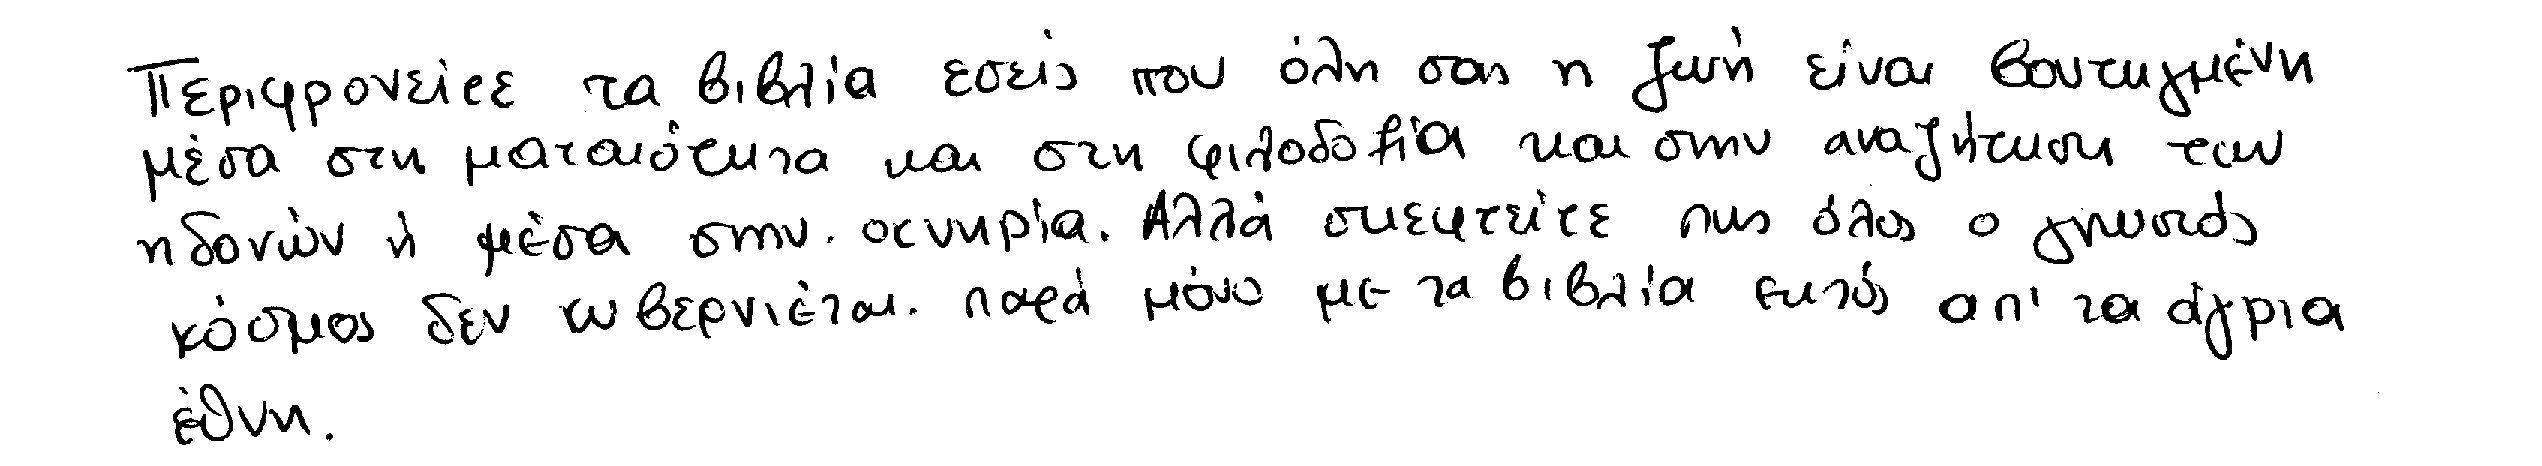 Περιφρονείτε τα βιβλία εσείς που όλη σας η ζωή είναι βουτηγμένη
μέσα στη ματαιότητα και στη φιλοδοξία και στην αναζήτηση των
ηδονών ή μέσα στην οκνηρία. Αλλά σκεφτείτε πως όλος ο γνωστός
κόσμος δεν κυβερνιέται. παρά μόνο με τα βιβλία εκτός απ' τα άγρια
έθνη.